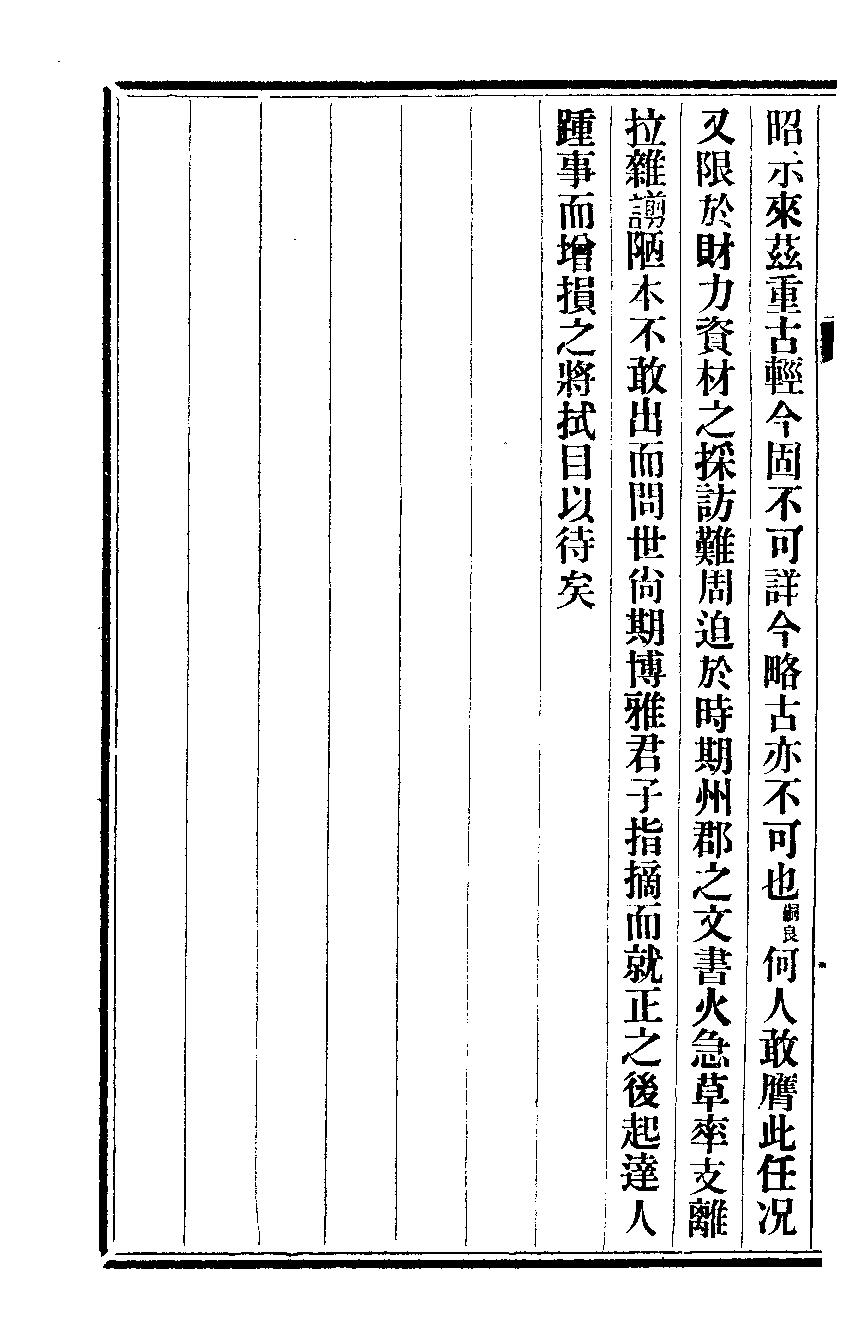 昭示來茲重古輕今固不可詳今略古亦不可也嗣良何人敢膺此任况
又限於財力資材之採訪難周迫於時期州郡之文書火急草率支離
拉雜譾陋本不敢出而問世尙期博雅君子指摘而就正之後起達人
踵事而增損之將拭目以待矣